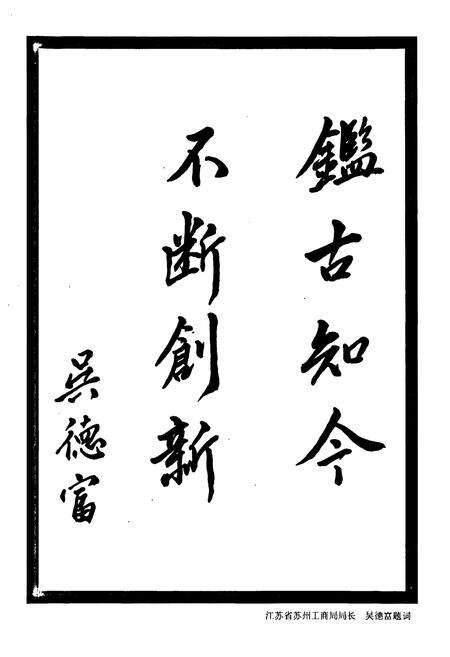 鑑古知今
不断創新
吳德富
江苏省苏州工商局局长 吴德富题词